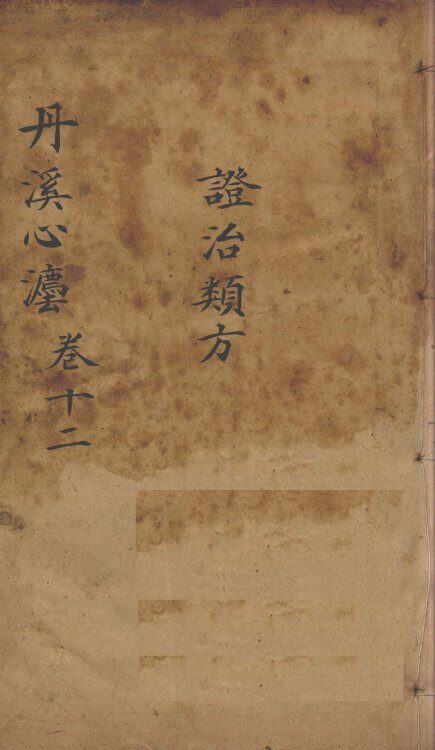 證治類方
丹溪心灋
卷十二